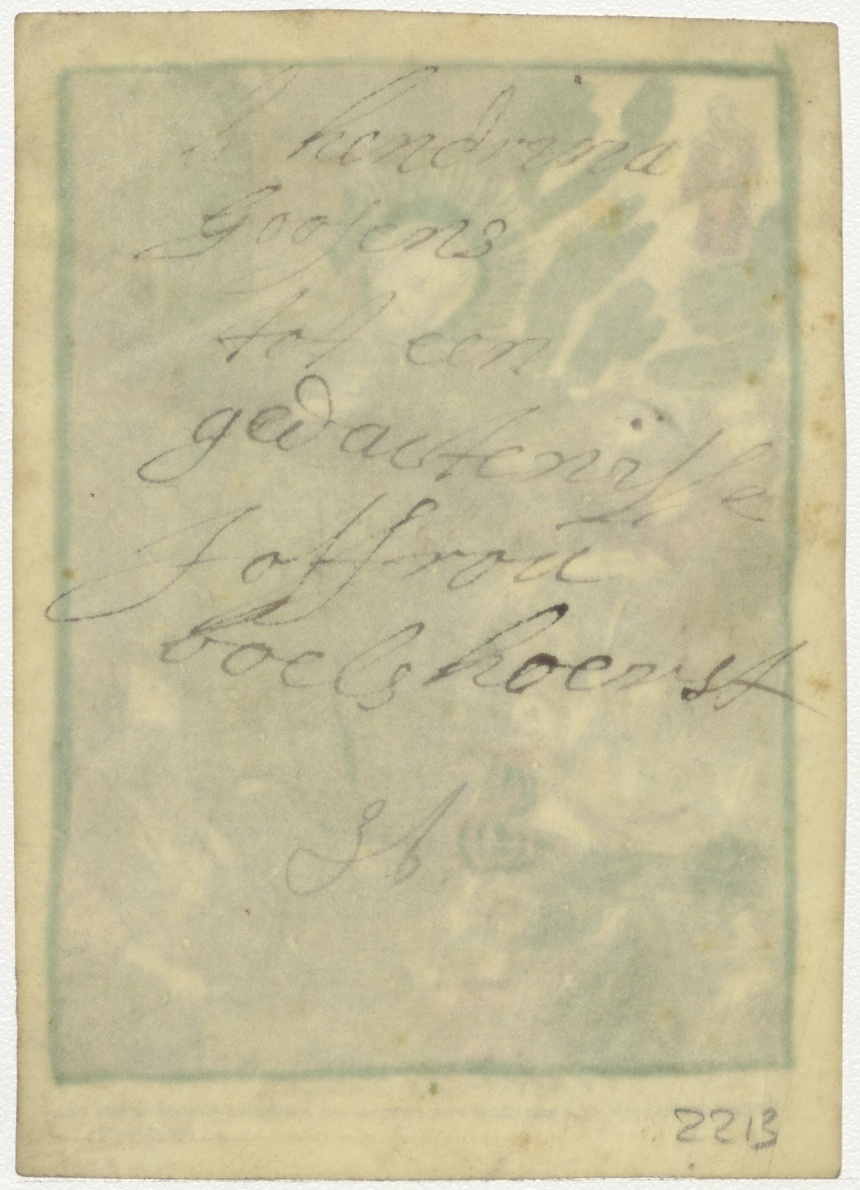 hendrina
Goosens
tot een
gedactenisse
Joffrou
boelshoerst
2213